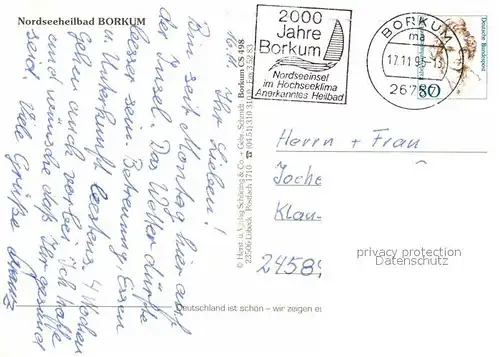 Nordseeheilbad BORKUM
16.11.
Ihr Lieben!
Bin seit Montag hier auf
der Insel. Das Wetter dürfte
besser sein. Betreuung, Essen
u. Unterkunft bestens. 4 Wochen
gehen auch vorbei. Ich hoffe
und wünsche daß Ihr gesund
seid. Viele Grüße
Borkum CS 498
© Herst. u. Verlag Schöning & Co. + Gebr. Schmidt
23506 Lübeck · Postfach 1710
2000
Jahre
Borkum
Nordseeinsel
im Hochseeklima
Anerkanntes Heilbad
BORKUM
ma
17.11.95-13
26757
Deutsche Bundespost
Herrn + Frau
Joche
Klau-
2458
privacy protection
Datenschutz
Deutschland ist schön – wir zeigen es